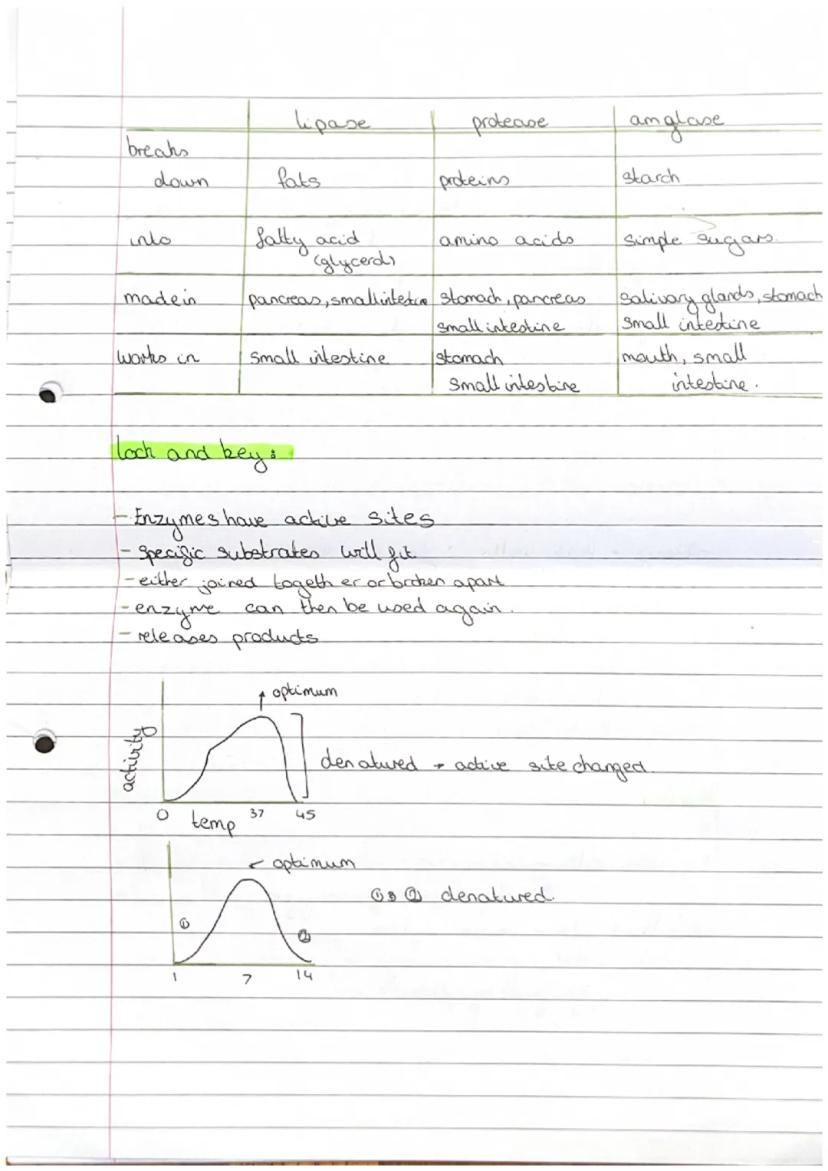 lipase protease amylase
breaks
down fats proteins starch
into fatty acid amino acids simple sugars.
(glycerol)
made in pancreas, small intestine stomach, pancreas salivary glands, stomach
small intestine small intestine
works in small intestine stomach mouth, small
small intestine intestine.
lock and key:
- Enzymes have active sites
- specific substrates will fit
- either joined together or broken apart
- enzyme can then be used again.
- releases products
optimum
activity
denatured → active site changed.
0 37 45
temp
← optimum
① & ② denatured.
①
②
1 7 14